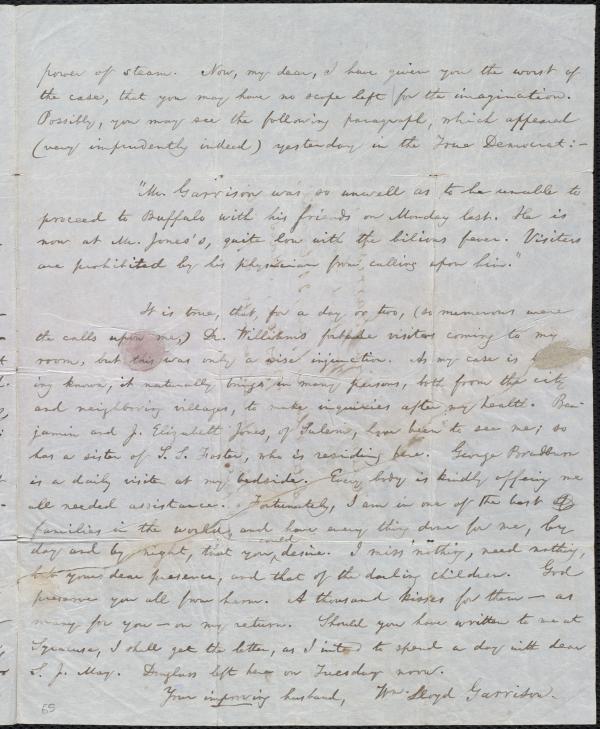 power of steam. Now, my dear, I have given you the worst of
the case, that you may have no scope left for the imagination.
Possibly, you may see the following paragraph, which appeared
(very imprudently indeed) yesterday in the True Democrat:-
"Mr. Garrison was so unwell as to be unable to
proceed to Buffalo with his friends on Monday last. He is
now at Mr. Jones's, quite low with the bilious fever. Visiters
are prohibited by his physician from calling upon him."
It is true, that, for a day or two, (so numerous were
the calls upon me,) Dr. Williams forbade visitors coming to my
room, but this was only a wise injunction. As my case is
ing known, it naturally brings in many persons, both from the city
and neighboring villages, to make inquiries after my health. Ben-
jamin and J. Elizabeth Jones, of Salem, have been to see me; so
has a sister of S. S. Foster, who is residing here. George Bradburn
is a daily visiter at my bedside. Every body is kindly offering me
all needed assistance. Fortunately, I am in one of the best
families in the world, and have every thing done for me, by
day and by night, that you could desire. I miss nothing, need nothing,
but your dear presence, and that of the darling children. God
preserve you all from harm. A thousand kisses for them — as
many for you — on my return. Should you have written to me at
Syracuse, I shall get the letter, as I intend to spend a day with dear
S. J. May. Douglass left here on Tuesday noon.
Your improving husband, Wm. Lloyd Garrison.
59